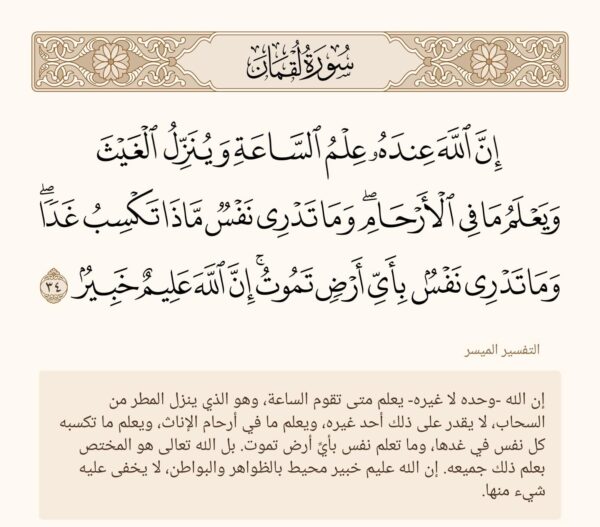 سُورَةُ لُقْمَان
إِنَّ ٱللَّهَ عِندَهُۥ عِلْمُ ٱلسَّاعَةِ وَيُنَزِّلُ ٱلْغَيْثَ
وَيَعْلَمُ مَا فِى ٱلْأَرْحَامِۖ وَمَا تَدْرِى نَفْسٌ مَّاذَا تَكْسِبُ غَدًاۖ
وَمَا تَدْرِى نَفْسٌۢ بِأَىِّ أَرْضٍ تَمُوتُۚ إِنَّ ٱللَّهَ عَلِيمٌ خَبِيرٌۢ ٣٤
التفسير الميسر
إن الله -وحده لا غيره- يعلم متى تقوم الساعة، وهو الذي ينزل المطر من
السحاب، لا يقدر على ذلك أحد غيره، ويعلم ما في أرحام الإناث، ويعلم ما تكسبه
كل نفس في غدها، وما تعلم نفس بأيِّ أرض تموت. بل الله تعالى هو المختص
بعلم ذلك جميعه. إن الله عليم خبير محيط بالظواهر والبواطن، لا يخفى عليه
شيء منها.